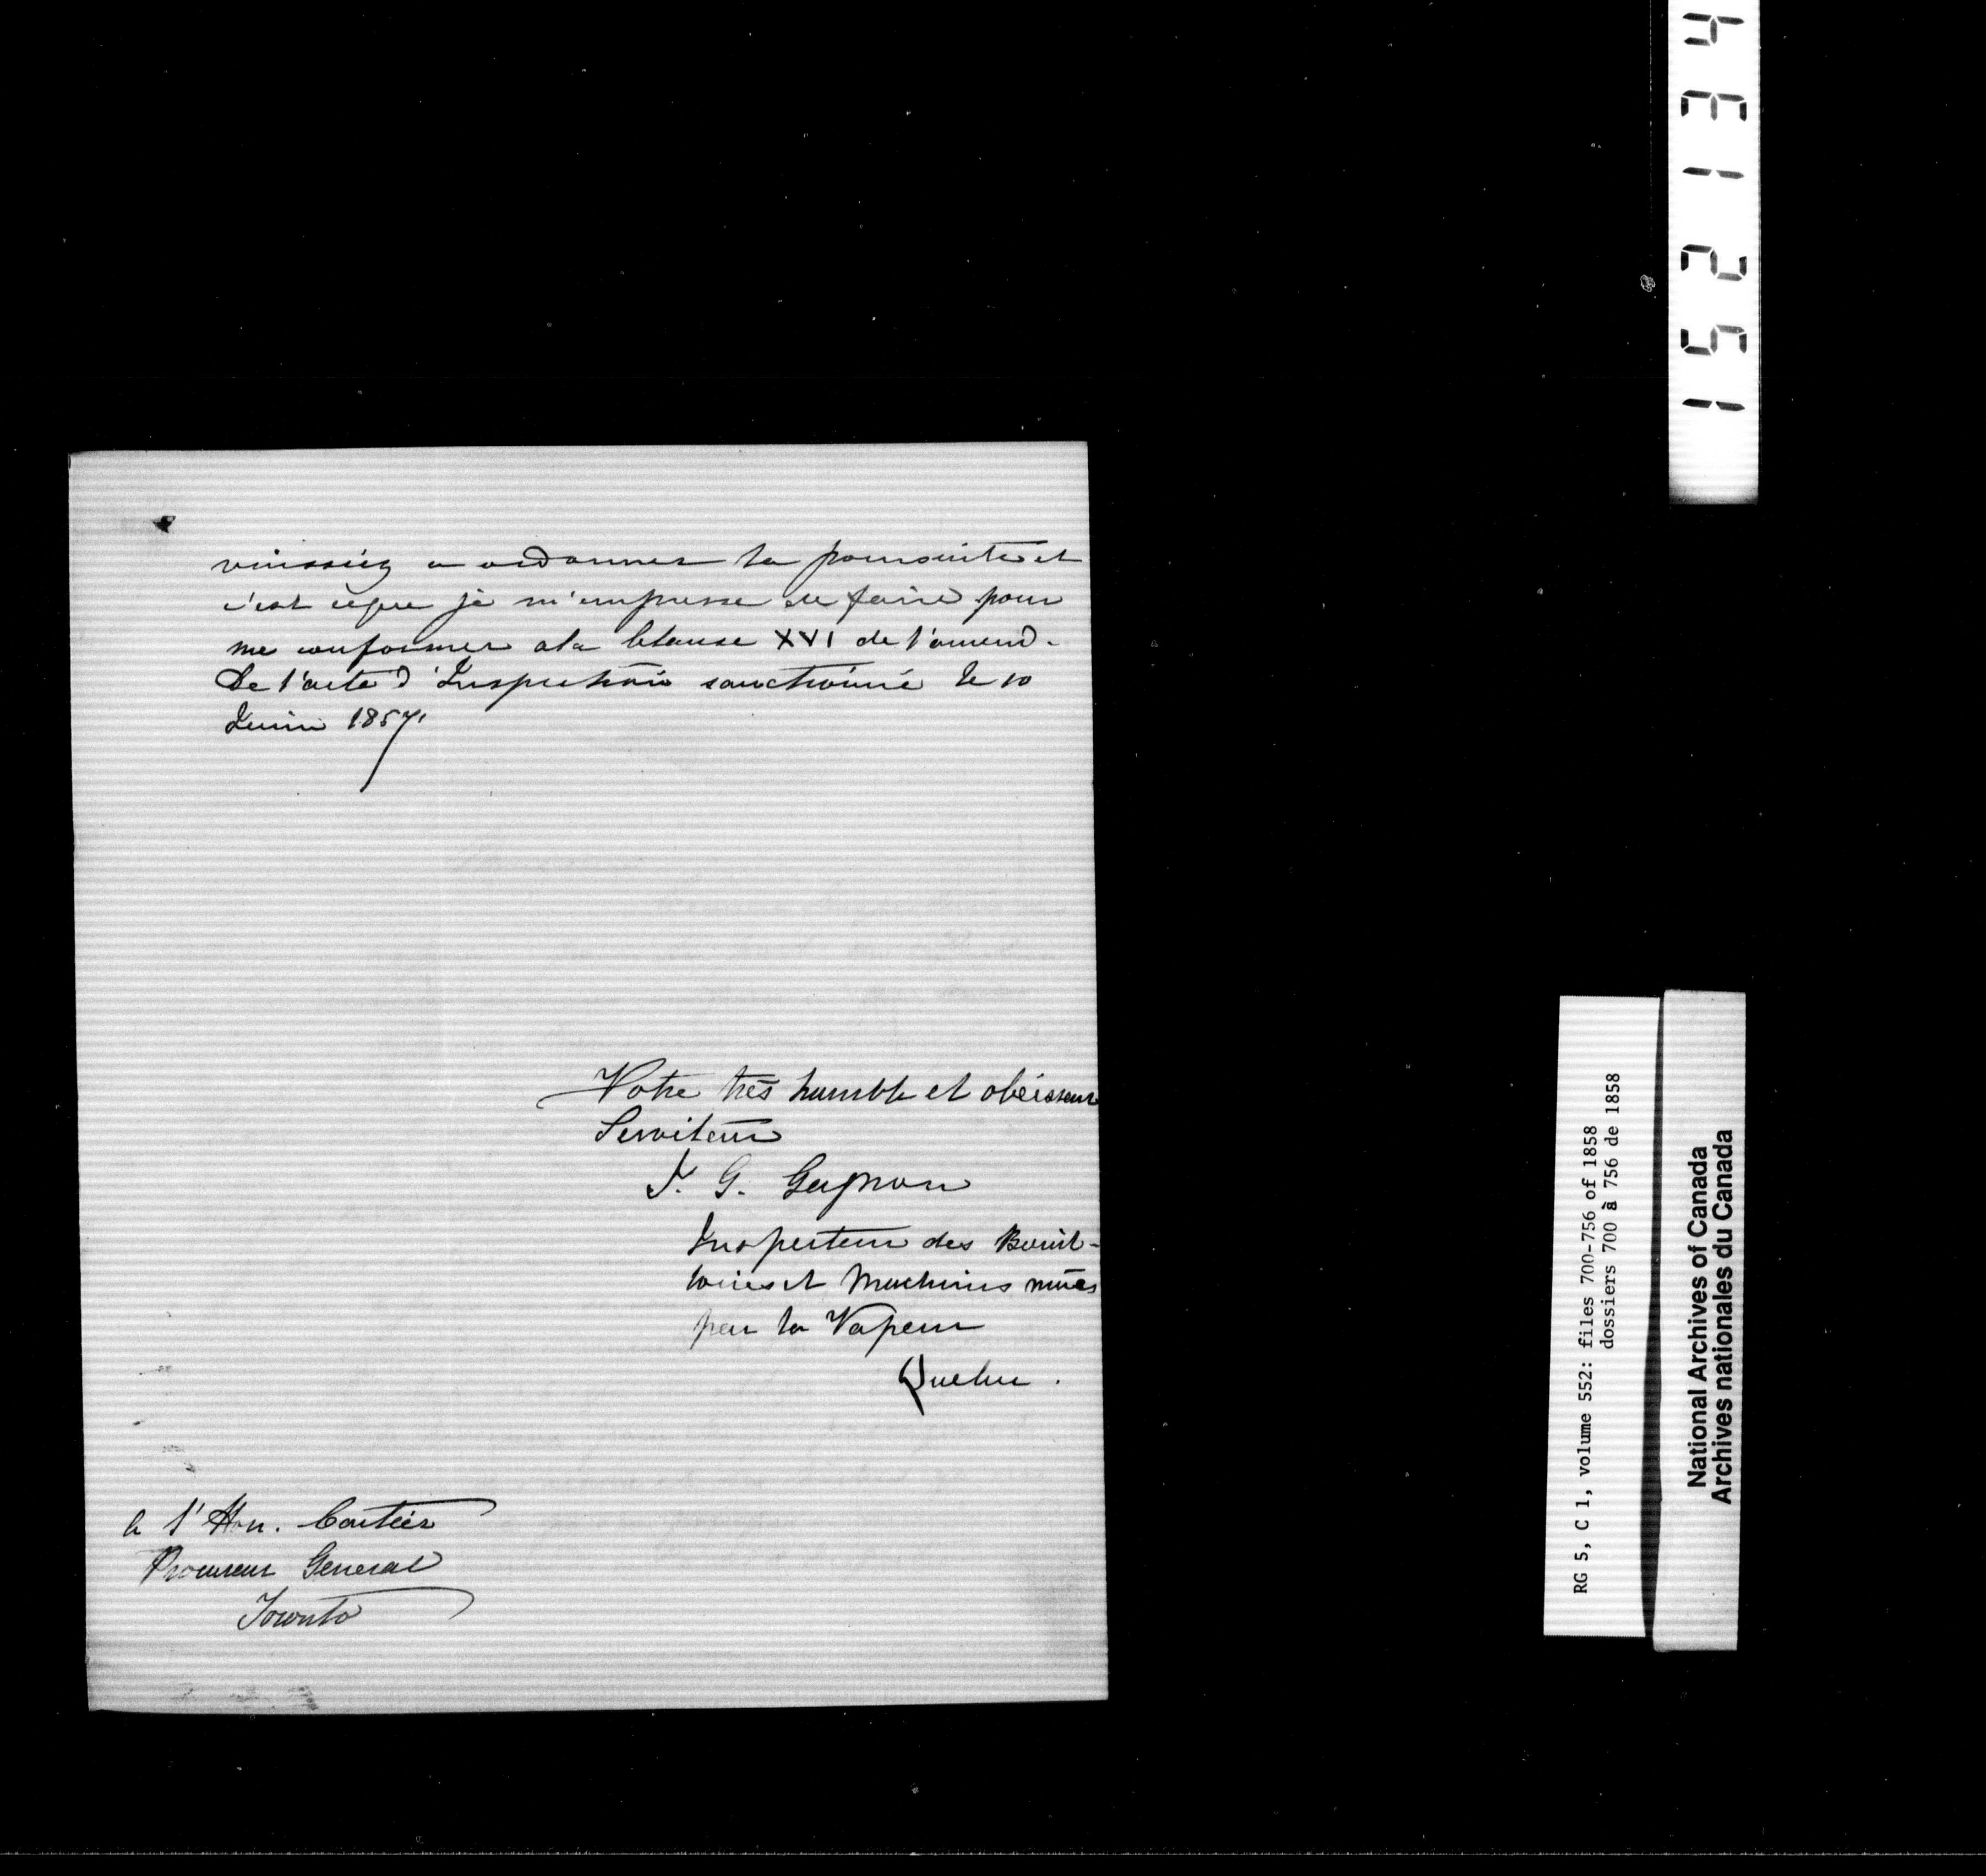 vinssiéz a ordonner la poursuite et
c'est ceque je m'empresse de faire pour
me conformer ala Clause XVI de l'amend-
De l'acte d'Inspection sanctionné le 10
Juin 1857.
Votre très humble et obéissant
Serviteur
J. G. Gagnon
Inspecteur des Bouil-
loires et Machines mûes
par la Vapeur
Quebec.
a l'Hon. Cartier
Procureur General
Toronto
RG 5, C 1, volume 552: files 700-756 of 1858
dossiers 700 à 756 de 1858
National Archives of Canada
Archives nationales du Canada